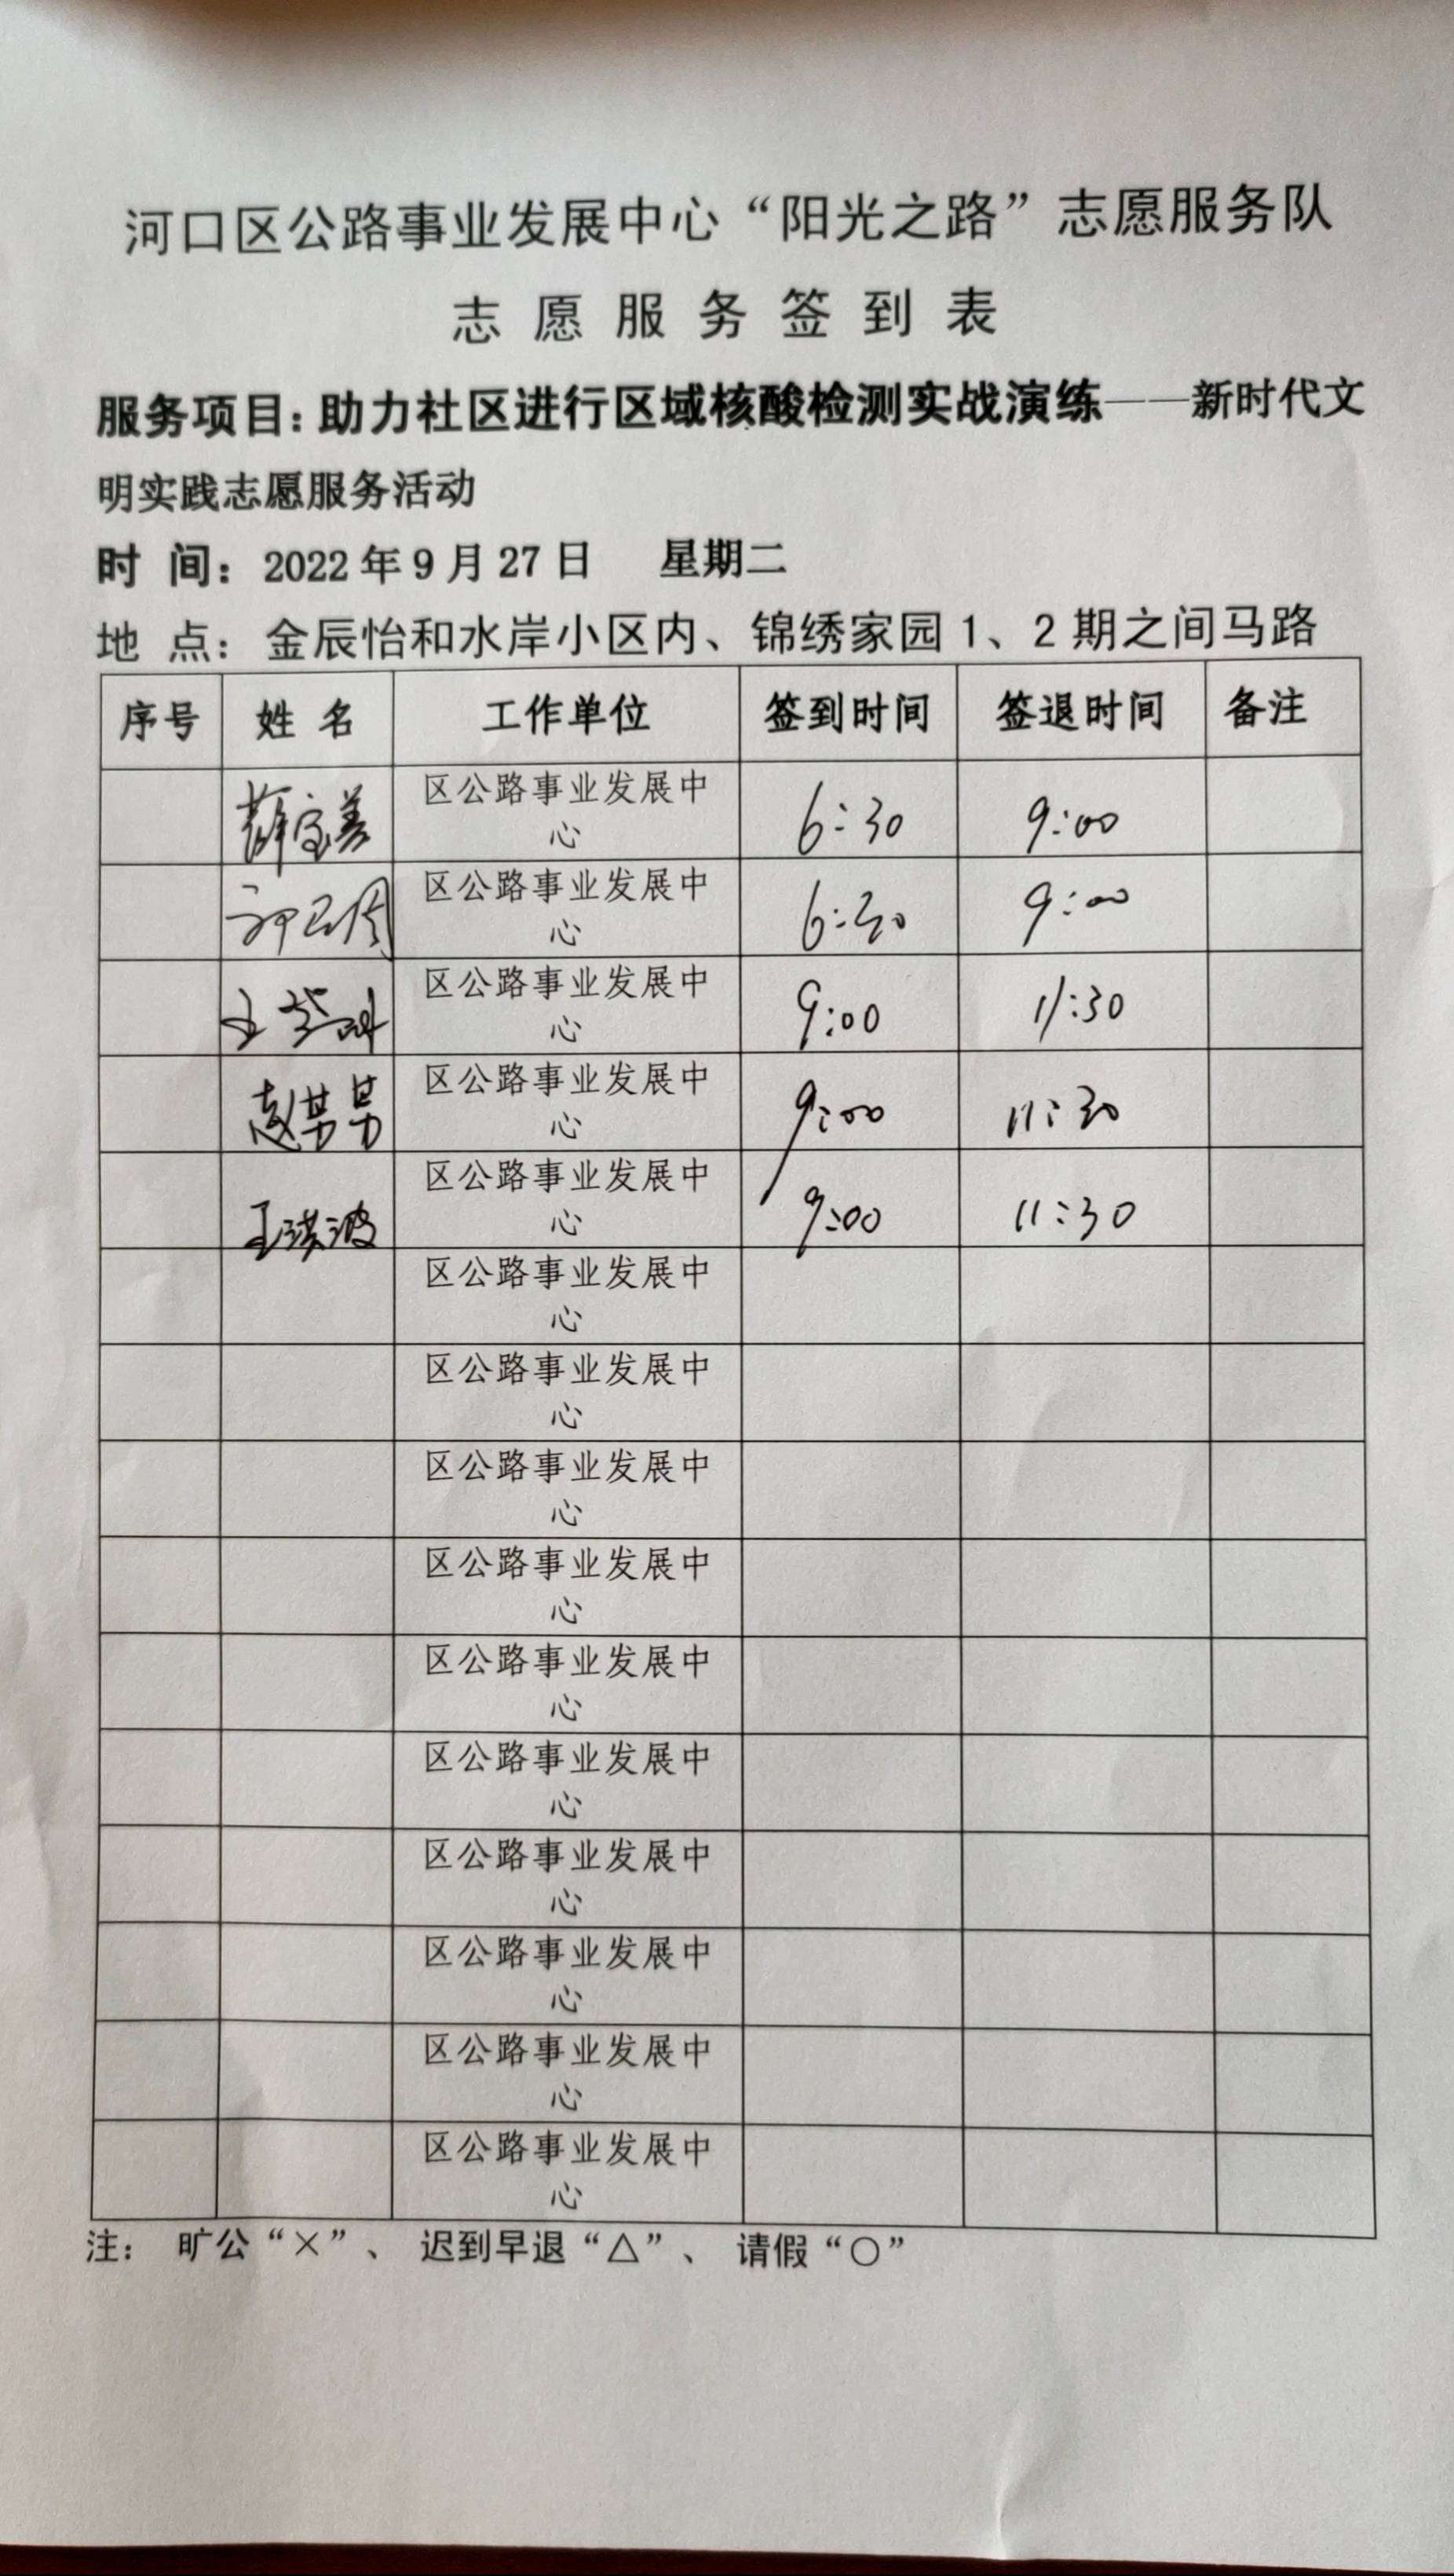 河口区公路事业发展中心“阳光之路”志愿服务队
志愿服务签到表
服务项目：助力社区进行区域核酸检测实战演练——新时代文
明实践志愿服务活动
时 间：2022年9月27日 星期二
地 点：金辰怡和水岸小区内、锦绣家园1、2期之间马路
序号 姓名 工作单位 签到时间 签退时间 备注
薛宝善 区公路事业发展中 6:30 9:00
心
区公路事业发展中 6:30 9:00
心
王 区公路事业发展中 9:00 11:30
心
赵男男 区公路事业发展中 9:00 11:30
心
王洪波 区公路事业发展中 9:00 11:30
心
区公路事业发展中
心
区公路事业发展中
心
区公路事业发展中
心
区公路事业发展中
心
区公路事业发展中
心
区公路事业发展中
心
区公路事业发展中
心
区公路事业发展中
心
区公路事业发展中
心
区公路事业发展中
心
注： 旷公“×”、 迟到早退“△”、 请假“○”